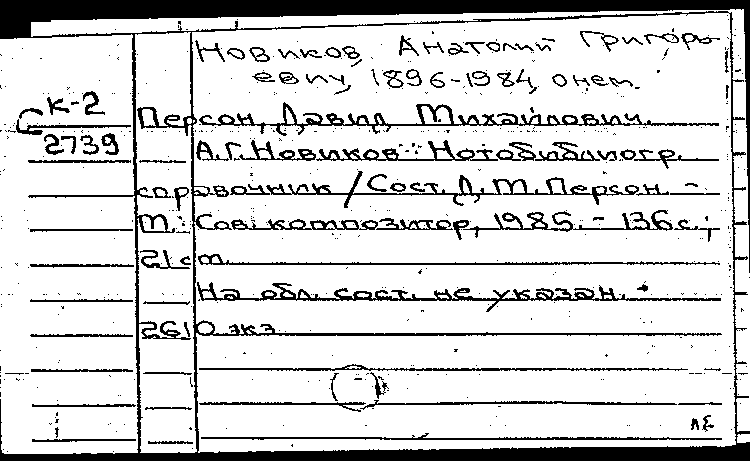 Новиков, Анатолий Григорь-
евич, 1896-1984, о нем.
С К-2
2739
Персон, Давид Михайлович.
А.Г. Новиков: Нотобиблиогр.
справочник / Сост. Д. М. Персон. -
М.: Сов. композитор, 1985. - 136 с.;
21 см.
На обл. сост. не указан. -
2610 экз